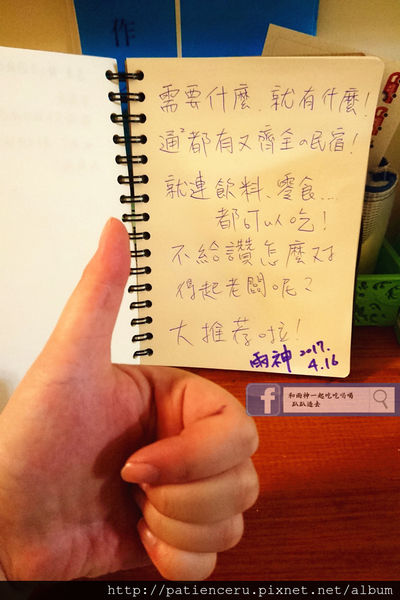 作
需要什麼、就有什麼!
通²都有又齊全の民宿!
就連飲料、零食...
都可以吃!
不給讚怎麼对
得起老闆呢?
大推荐啦!
雨神 2017.
4.16
和雨神一起吃吃喝喝
趴趴造去
http://patienceru.pixnet.net/album